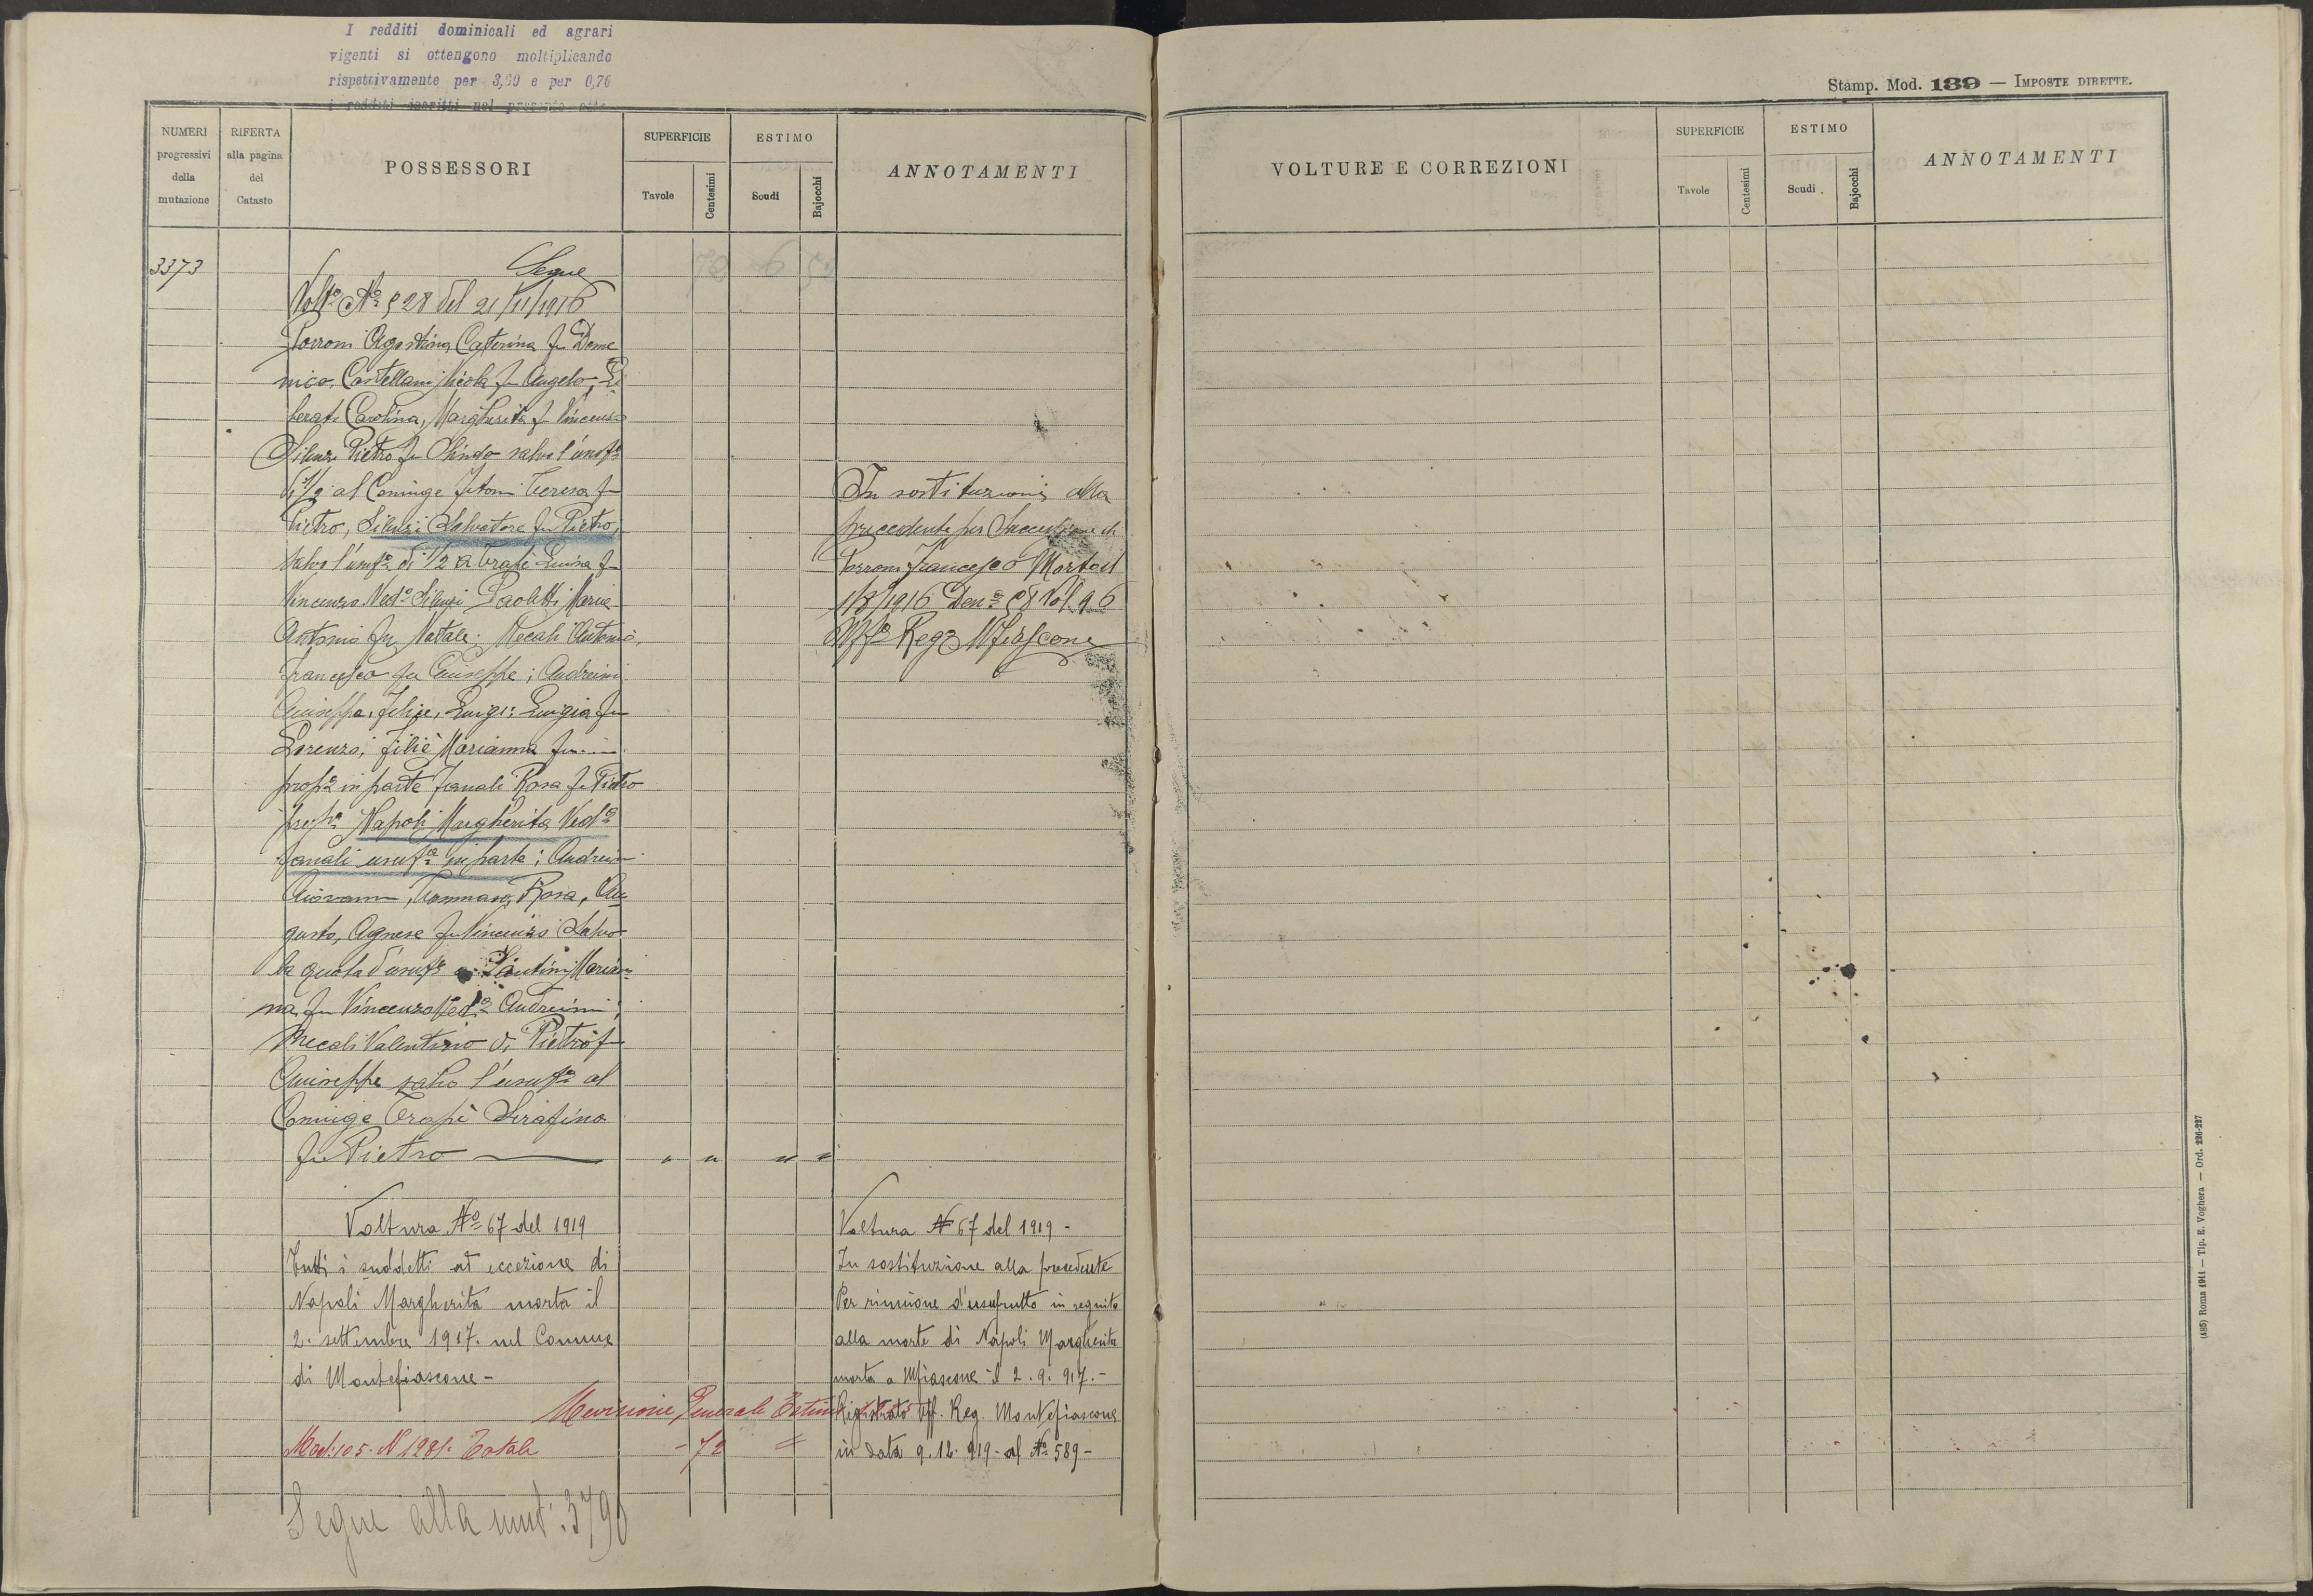 I redditi dominicali ed agrari
vigenti si ottengono moltiplicando
rispettivamente per e per 0,76
i redditi iscritti nel presente atto
Stamp. Mod. 139 — IMPOSTE DIRETTE.
NUMERI progressivi della mutazione
RIFERTA alla pagina del Catasto
POSSESSORI
SUPERFICIE
Tavole
Centesimi
ESTIMO
Scudi
Bajocchi
ANNOTAMENTI
VOLTURE E CORREZIONI
SUPERFICIE
Tavole
Centesimi
ESTIMO
Scudi
Bajocchi
ANNOTAMENTI
3373
Segue
Volta No 528 del 21/11/1916
Porroni Agostino, Caterina fu Dome
nico, Castellani Nicola fu Angelo, Li
berati Carolina, Margherita fu Vincenzo
Silenzi Pietro fu Olindo salvo l'usufo
1/2 al Coniuge Teresa fu
Pietro, Silenzi Salvatore fu Pietro,
salvo l'usufo di 1/2 a Trapè Luisa fu
Vincenzo Veda Silenzi Paoletti Maria
Antonio fu Natale. Mecali Antonio,
Francesco fu Giuseppe; Andreini
Giuseppe, Felice, Luigi: Luigia fu
Lorenzo; Filiè Marianna fu....
propa in parte Fanali Rosa fu Pietro
propa Napoli Margherita Veda
Fanali usufa in parte; Andreini
Giovanni, Tommaso, Rosa, Au
gusto, Agnese fu Vincenzo Salvo
la quota d'usufo a Santini Marian
na fu Vincenzo Veda Andreini;
Mecali Valentino di Pietro fu
Giuseppe salvo l'usufo al
Coniuge Trapè Serafina
fu Pietro — " " " "
In sostituzione alla
precedente per Successione di
Porroni Francesco Morto il
1/8/1916 Dena 58 Vol. 96
Uffo Rego Mfiascone
Voltura No 67 del 1919
Tutti i suddetti ad eccezione di
Napoli Margherita morta il
2. settembre 1917. nel Comune
di Montefiascone -
Voltura No 67 del 1919 -
In sostituzione alla precedente
Per riunione d'usufrutto in seguito
alla morte di Napoli Margherita
morta a Mfiascone il 2. 9. 917. -
Registrato Uff. Reg. Montefiascone
in data 9. 12. 919 - al No 589 -
Revisione Generale Estimi
Mod: 105. N 1281. Totale - 72 "
Segue alla mut: 3790
(485) Roma 1914 — Tip. E. Voghera — Ord. 226-227